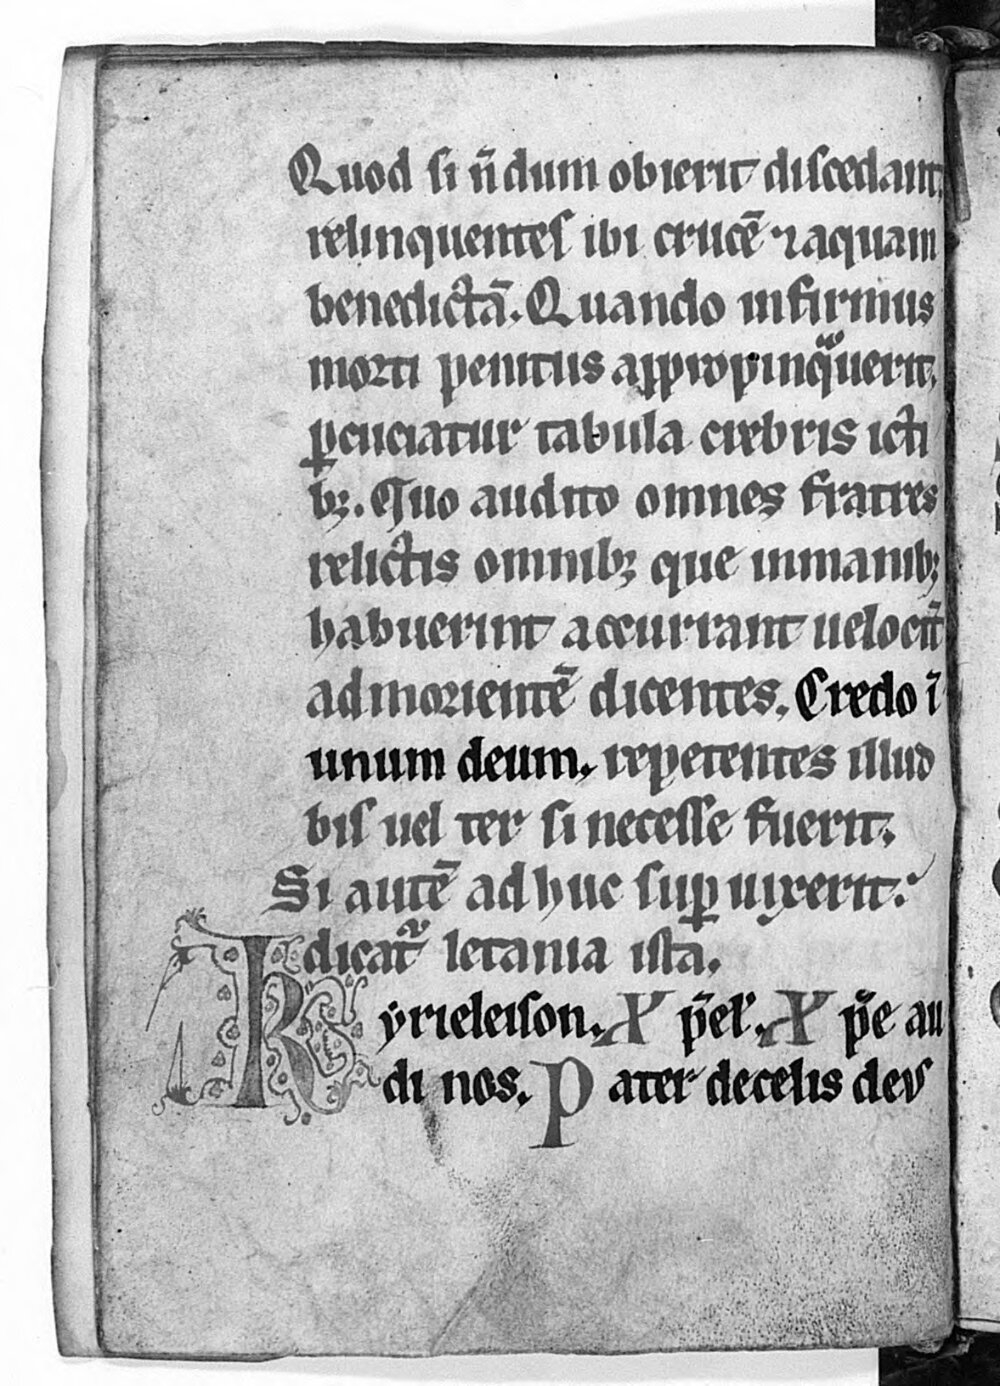 Quod si n̄ dum obierit discedant.
relinquentes ibi crucē ⁊ aquam
benedictā. Quando infirmus
morti penitus appropinqͣuerit.
ꝑcuciatur tabula crebris icti
bꝫ. Quo audito omnes fratres
relictis omnibꝫ que inmanibꝫ
habuerint accurrant uelocit̄
ad morientē dicentes. Credo ī
unum deum. repetentes illud
bis uel ter si necesse fuerit.
Si autē ad huc suꝑ uixerit.
dicat᷑ letania ista.
Kyrieleison. Xp̄el'. Xp̄e au
di nos. Pater de celis deus